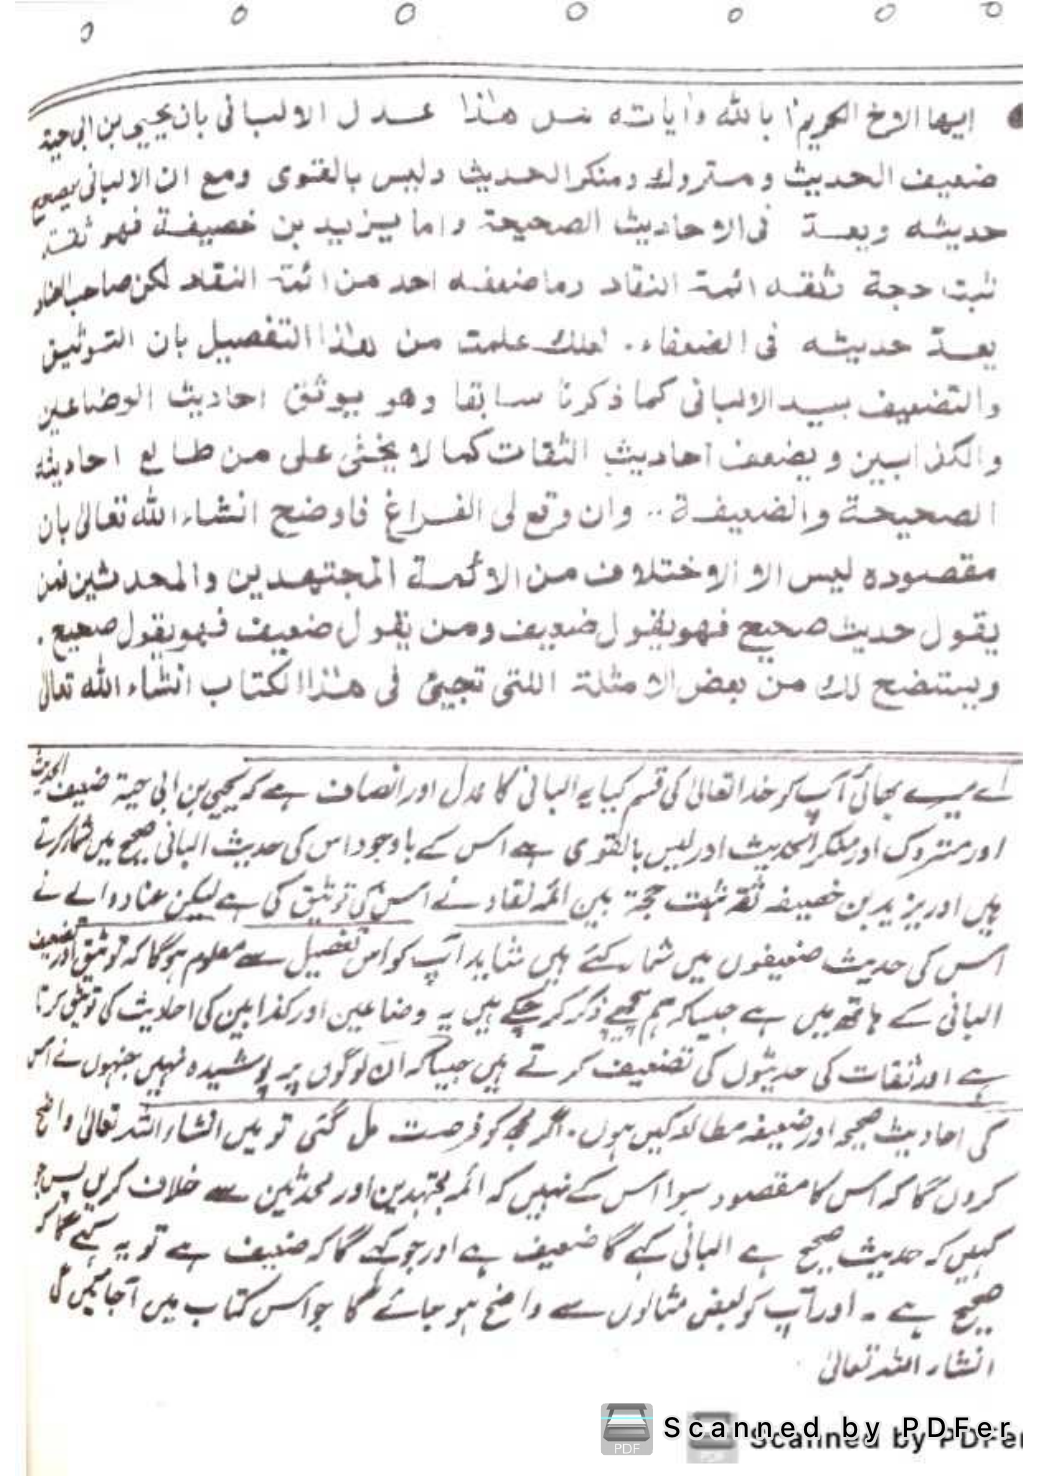 ايها الاخ الكريم! بالله وآياته هل هذا عدل الالباني بان يحيى بن ابى حية
ضعيف الحديث ومتروك ومنكر الحديث وليس بالقوى ومع ان الالبانى يصحح
حديثه ويعدّ فى الاحاديث الصحيحة واما يزيد بن خصيفة فهو ثقة
ثبت حجة وثقه ائمة النقاد وما ضعفه احد من ائمة النقاد لكن صاحب العناد
يعدّ حديثه فى الضعفاء۔ لعلك علمت من هذا التفصيل بان التوثيق
والتضعيف بيد الالبانى كما ذكرنا سابقا وهو يوثق احاديث الوضاعين
والكذابين ويضعف احاديث الثقات كما لا يخفى على من طالع احاديثه
الصحيحة والضعيفة۔۔ وان وقع لى الفراغ فاوضح انشاء الله تعالى بان
مقصوده ليس الا الاختلاف من الائمة المجتهدين والمحدثين فمن
يقول حديث صحيح فهو يقول ضعيف ومن يقول ضعيف فهو يقول صحيح۔
ويستضح لك من بعض الامثلة اللتى تجيئ فى هذا الكتاب انشاء الله تعالى
اے میرے بھائی آپ کو خدا تعالیٰ کی قسم کیا یہ البانی کا عدل اور انصاف ہے کہ یحییٰ بن ابی حیۃ ضعیف الحدیث
اور متروک اور منکر الحدیث اور لیس بالقوی ہے اس کے باوجود اس کی حدیث البانی صحیح میں شمار کرتے
ہیں اور یزید بن خصیفہ ثقۃ ثبت حجۃ ہیں ائمہ نقاد نے اس کی توثیق کی ہے لیکن عناد والے نے
اس کی حدیث ضعیفوں میں شمار کئے ہیں شاید آپ کو اس تفصیل سے معلوم ہوگا کہ توثیق اور تضعیف
البانی کے ہاتھ میں ہے جیسا کہ ہم پیچھے ذکر کر چکے ہیں یہ وضاعین اور کذابین کی احادیث کی توثیق کرتا
ہے اور ثقات کی حدیثوں کی تضعیف کرتے ہیں جیسا کہ ان لوگوں پر پوشیدہ نہیں جنہوں نے اس
کی احادیث صحیحہ اور ضعیفہ مطالعہ کیں ہوں۔ اگر مجھ کو فرصت مل گئی تو میں انشاء اللہ تعالیٰ واضح
کروں گا کہ اس کا مقصود سوا اس کے نہیں کہ ائمہ مجتہدین اور محدثین سے خلاف کریں پس جو
کہیں کہ حدیث صحیح ہے البانی کہے گا ضعیف ہے اور جو کہے گا کہ ضعیف ہے تو یہ کہے گا کہ
صحیح ہے۔ اور آپ کو بعض مثالوں سے واضح ہو جائے گا جو اس کتاب میں آجائیں گی
انشاء اللہ تعالیٰ
Scanned by PDFer
Scanned by PDFer